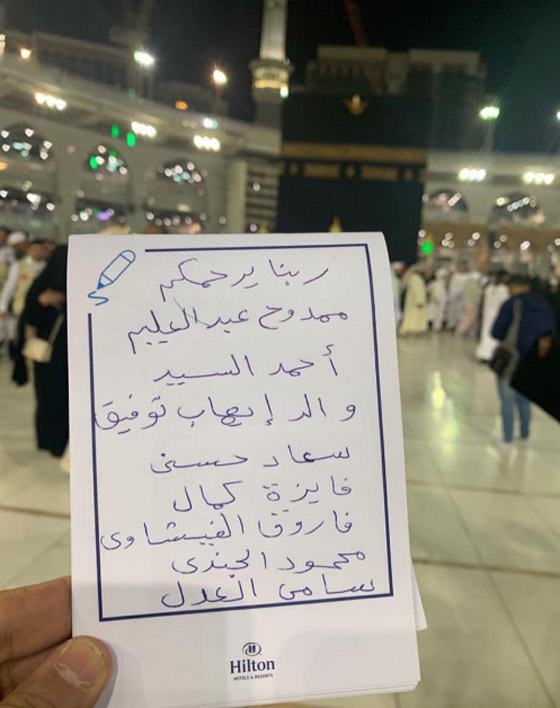 ربنا يرحمكم
ممدوح عبد العليم
أحمد السيد
والد إيهاب توفيق
سعاد حسنى
فايزة كمال
فاروق الفيشاوى
محمود الجندى
سامى العدل
Hilton
HOTELS & RESORTS